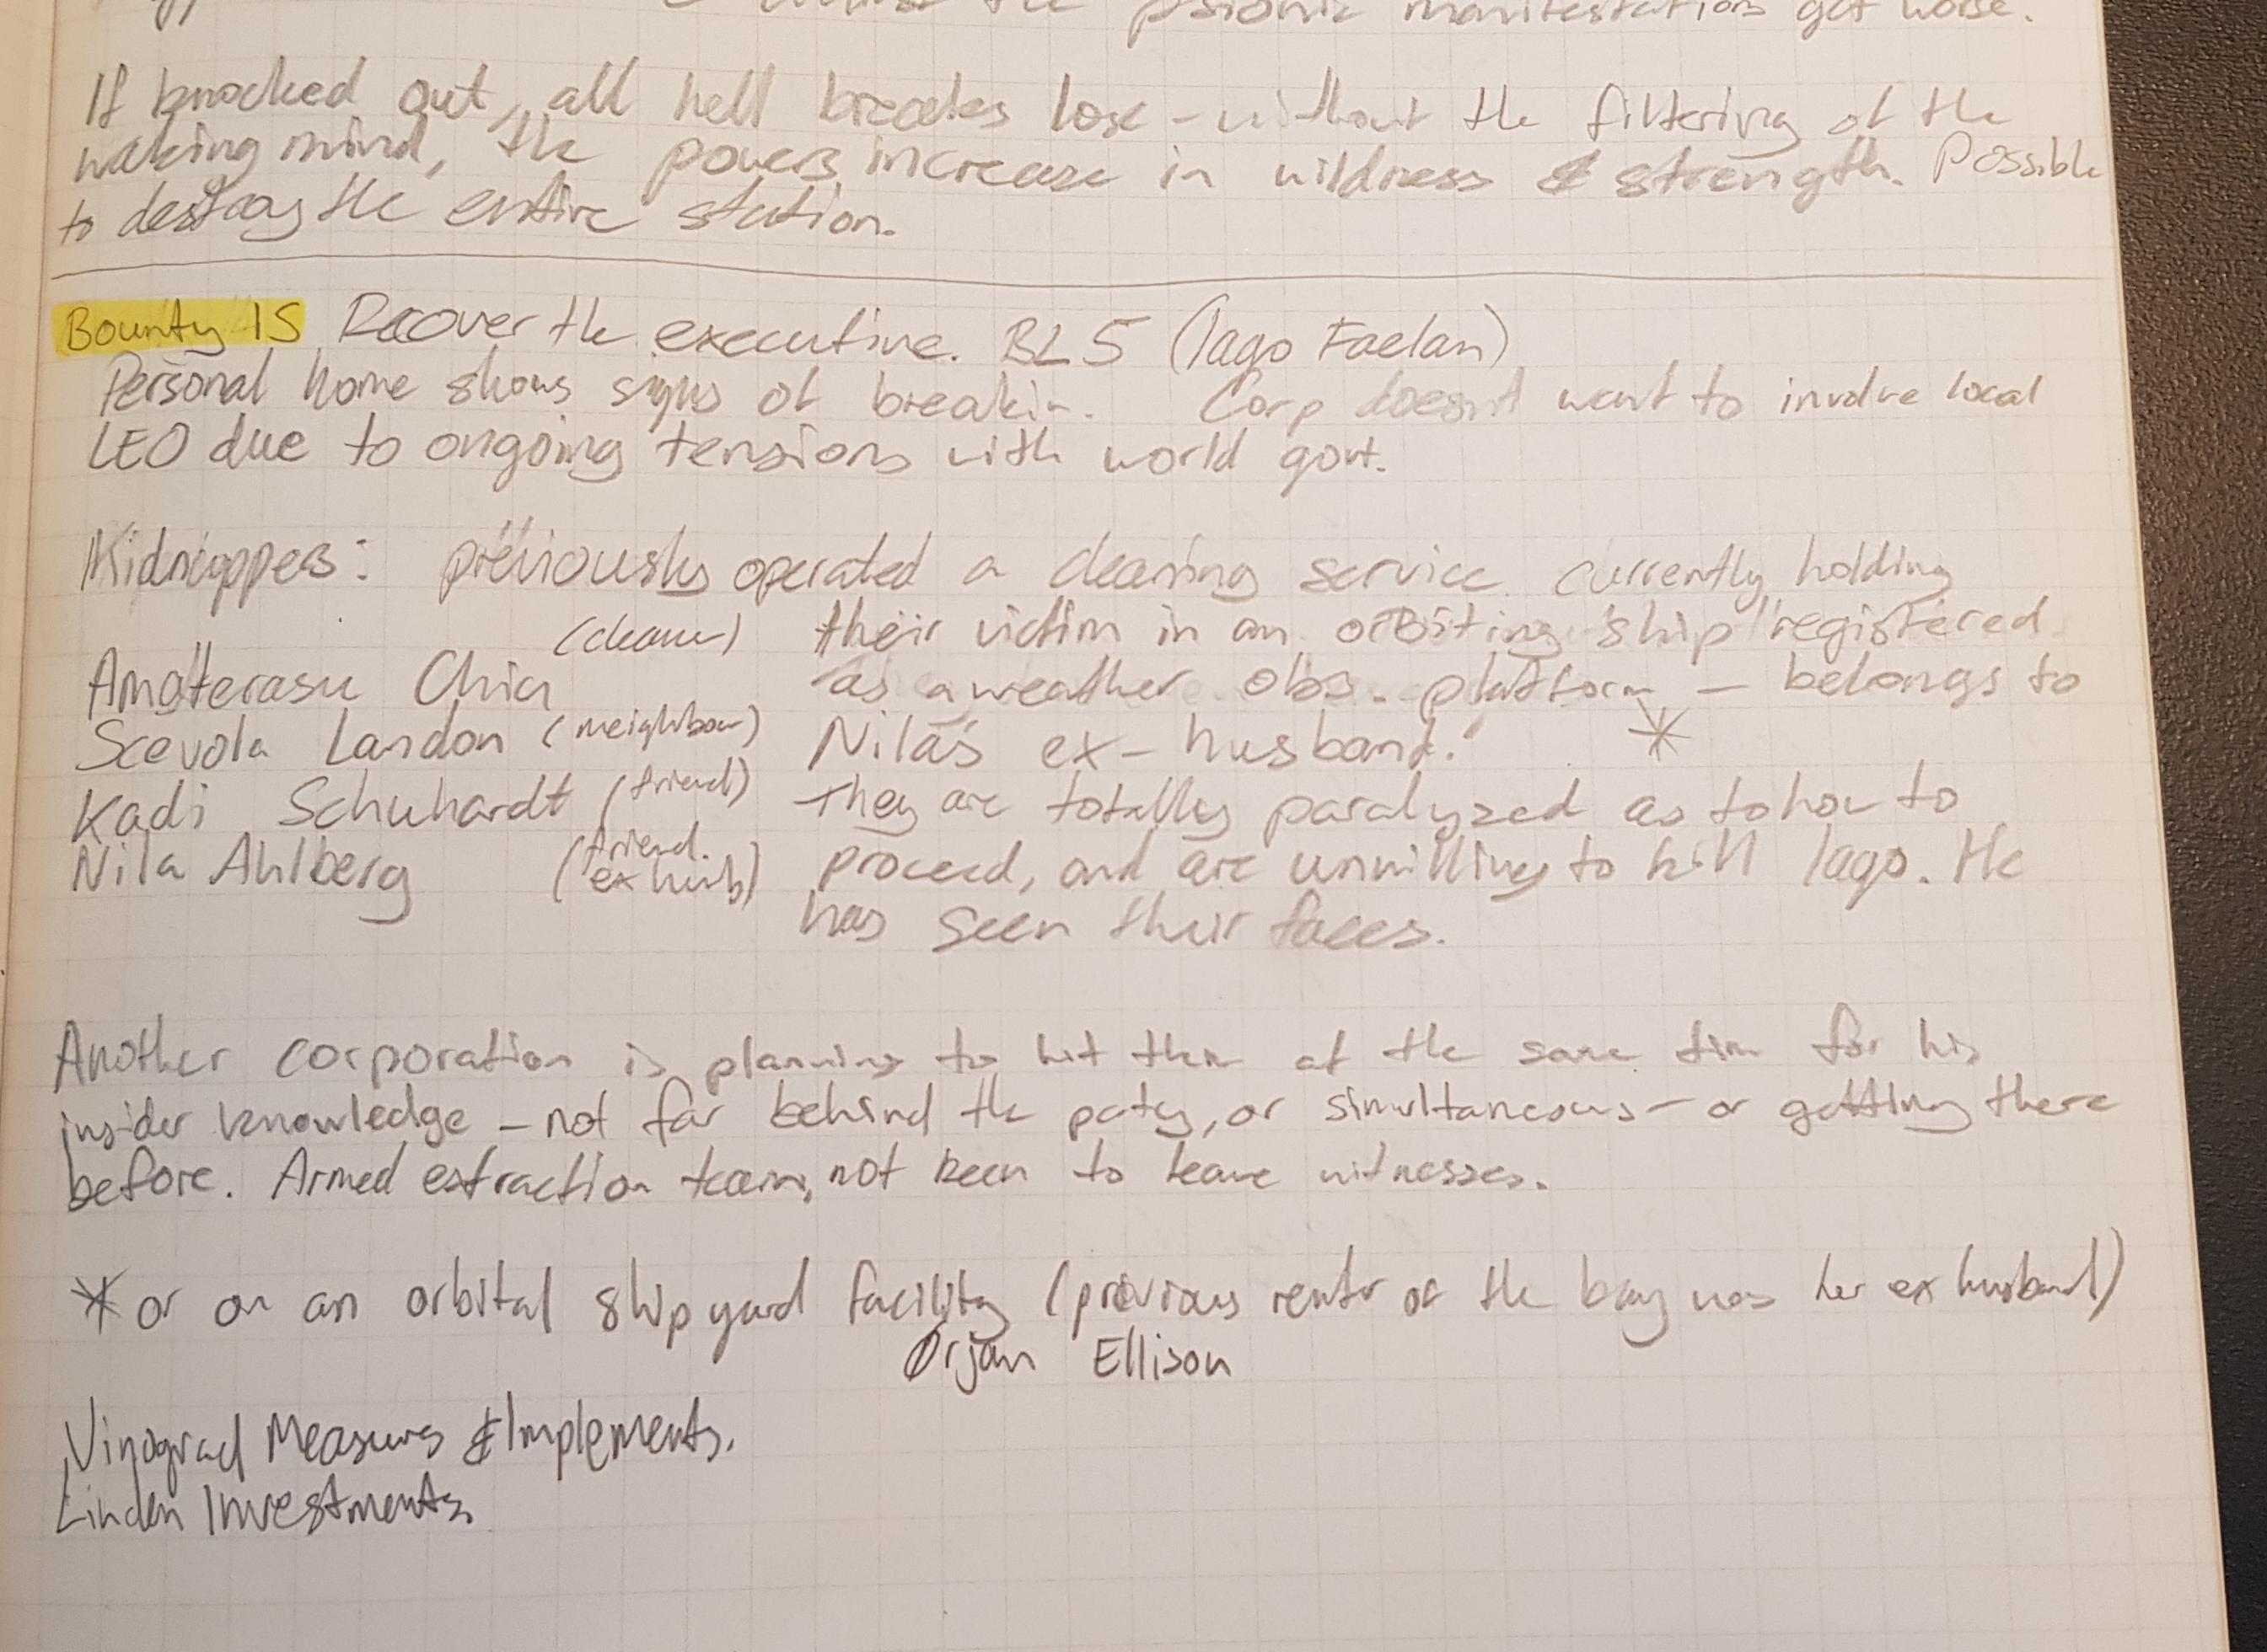 the psionic manifestations get worse.
If knocked out, all hell breaks lose - without the filtering of the
waking mind, the powers increase in wildness & strength. Possible
to destroy the entire station.
Bounty 15 Recover the executive. BL5 (Iago Faelan)
Personal home shows signs of breakin. Corp doesn't want to involve local
LEO due to ongoing tensions with world govt.
Kidnappers: previously operated a cleaning service. currently holding
(cleaner) their victim in an orbiting "ship" registered
Amaterasu Chia as a weather obs. platform — belongs to
Scevola Landon (neighbour) Nila's ex-husband. *
Kadi Schuhardt (friend) They are totally paralyzed as to how to
Nila Ahlberg (friend. ex husb) proceed, and are unwilling to kill Iago. He
has seen their faces.
Another corporation is planning to hit them at the same time for his
insider knowledge - not far behind the party, or simultaneous - or getting there
before. Armed extraction team, not keen to leave witnesses.
* or on an orbital shipyard facility (previous renter of the bay was her ex husband)
Ørjan Ellison
Vinograd Measures & Implements.
Linden Investments.